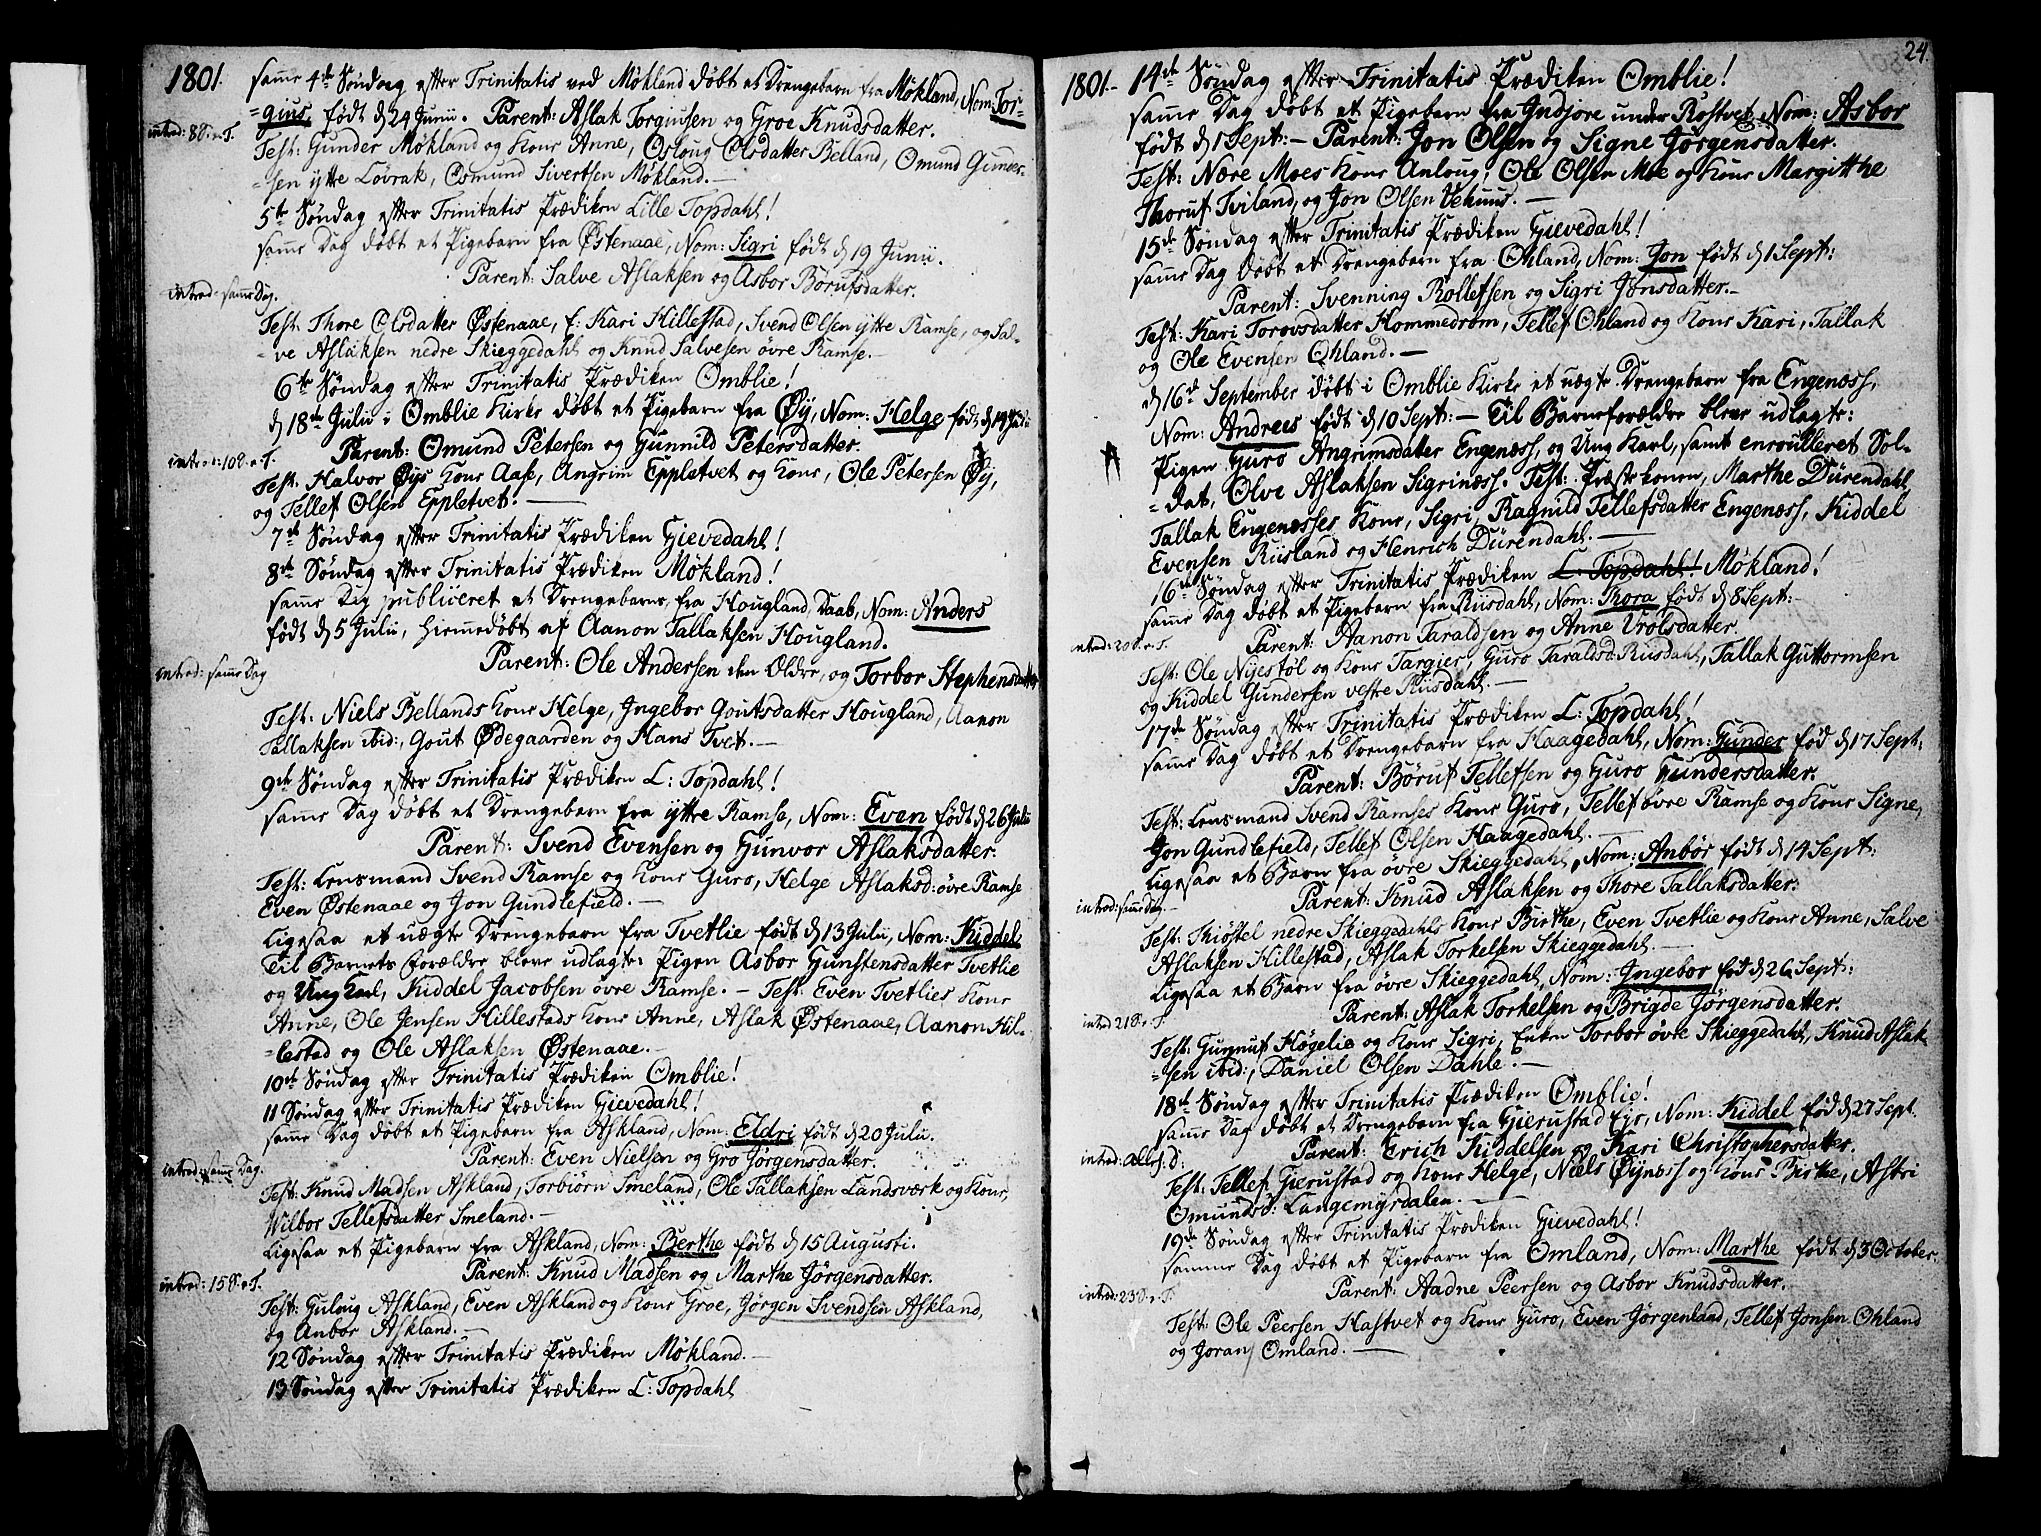 1801.
samme 4de Søndag efter Trinitatis ved Møkland døbt et Drengebarn fra Møkland, Nom: Tor-
=gius, født d 24 Junii. Parent: Aslak Torgiusen og Groe Knudsdatter.
introd: 8 S. e. T.
Test: Gunder Møkland og Kone Anne, Osloug Olsdatter Belland, Omund Gunder-
=sen ytte Løvrak, Osmund Sivertsen Møkland. —
5te Søndag efter Trinitatis Prædiken Lille Topdahl!
samme Dag døbt et Pigebarn fra Østenaae, Nom: Sigri født d 19 Junii.
Parent: Salve Aslaksen og Asbor Børufsdatter.
introd: samme Dag.
Test: Thore Olsdatter Østenaae, f: Kari Hillestad, Svend Olsen ytte Ramse, og Sal-
=ve Aslaksen nedre Skieggedahl og Knud Salvesen øvre Ramse. —
6te Søndag efter Trinitatis Prædiken Omblie!
d 18de Julii i Omblie Kirke døbt et Pigebarn fra Øÿ, Nom: Helge født d 14 Julii
Parent: Omund Petersen og Gunnild Petersdatter.
introd: 10 S. e. T.
Test. Halvor Øÿs Kone Aase, Angrim Eppletvet og Kone, Ole Petersen Øÿ,
og Tellef Olsen Eppletvet. —
7de Søndag efter Trinitatis Prædiken Gievedahl!
8de Søndag efter Trinitatis Prædiken Møkland!
samme Dag publiceret et Drengebarns, fra Hougland, Daab, Nom: Anders
født d 5 Julii, hiemmedøbt af Aanon Tallaksen Hougland.
Parent: Ole Andersen den Ældre, og Torbor Stephensdatter
introd: samme Dag
Test. Niels Bellands Kone Helge, Ingebor Goutsdatter Hougland, Aanon
Tallaksen ibid:, Gout Ødegaarden og Hans Tvet. —
9de Søndag efter Trinitatis Prædiken L: Topdahl!
samme Dag døbt et Drengebarn fra ÿttre Ramse, Nom: Even født d 26 Julii
Parent: Svend Evensen og Gunvor Aslaksdatter.
Test: Lensmand Svend Ramse og Kone Guro, Helge Aslaksd: øvre Ramse
Even Østenaae og Jon Gundlefield. —
Ligesaa et uægte Drengebarn fra Tvetlie født d 13 Julii, Nom: Kiddel
Til Barnets Forældre bleve udlagte: Pigen Asbor Gunstensdatter Tvetlie
og Ung Karl, Kiddel Jacobsen øvre Ramse. — Test: Even Tvetlies Kone
Anne, Ole Jensen Hillestads Kone Anne, Aslak Østenaae, Aanon Hil-
=lestad og Ole Aslaksen Østenaae. —
10de Søndag efter Trinitatis Prædiken Omblie!
11 Søndag efter Trinitatis Prædiken Gievedahl!
samme Dag døbt et Pigebarn fra Askland, Nom: Eldri født d 20 Julii.
Parent: Even Nielsen og Gro Jørgensdatter.
introd: samme Dag.
Test: Knud Madsen Askland, Torbiørn Smeland, Ole Tallaksen Landsværk og Kone,
Wilbor Tellefsdatter Smeland. —
Ligesaa et Pigebarn fra Askland, Nom: Berthe født d 15 Augusti.
Parent: Knud Madsen og Marthe Jørgensdatter.
introd: 15 S. e. T.
Test: Guloug Askland, Even Askland og Kone Groe, Jørgen Svendsen Askland,
og Anbor Askland. —
12 Søndag efter Trinitatis Prædiken Møkland. —
13 Søndag efter Trinitatis Prædiken L: Topdahl
24
1801. 14de Søndag efter Trinitatis Prædiken Omblie!
samme Dag døbt et Pigebarn fra Indjore under Rostvet, Nom: Asbor
født d 1 Sept: — Parent: Jon Olsen og Signe Jørgensdatter.
Test: Nære Moes Kone Anloug, Ole Olsen Moe og Kone Margitthe
Thoruf Tviland, og Jon Olsen Vehuus. —
15de Søndag efter Trinitatis Prædiken Gievedahl!
samme Dag døbt et Drengebarn fra Ohland, Nom: Jon født d 1 Sept:
Parent: Svenning Rollefsen og Sigri Jonsdatter. —
Test: Kari Torovsdatter Hommedrom, Tellef Ohland og Kone Kari, Tallak
og Ole Evensen Ohland. —
d 16de September døbt i Omblie Kirke et uægte Drengebarn fra Engenæss,
Nom: Andrees født d 10 Sept: — Til Barneforældre bleve udlagte:
Pigen Guro Angrimsdatter Engenæss, og Ung Karl, samt enroulleret Sol-
=dat, Olve Aslaksen Sigrinæss. Test: Præstekonen, Marthe Dürendahl,
Tallak Engenæsses Kone, Sigri, Ragnild Tellefsdatter Engenæss, Kiddel
Evensen Riisland og Henrich Dürendahl. —
16de Søndag efter Trinitatis Prædiken L: Topdahl! Møkland!
samme Dag døbt et Pigebarn fra Riisdahl, Nom: Thora født d 8 Sept: —
introd: 20 S. e. T.
Parent: Aanon Taraldsen og Anne Vrolsdatter.
Test: Ole Nÿestøl og Kone Targier, Guro Taraldsd: Riisdahl, Tallak Guttormsen
og Kiddel Gundersen vestre Riisdahl. —
17de Søndag efter Trinitatis Prædiken L: Topdahl!
samme Dag døbt et Drengebarn fra Haagedahl, Nom: Gunder fød d 17 Sept:
Parent: Børuf Tellefsen og Guro Gundersdatter. —
Test: Lensmand Svend Ramses Kone Guro, Tellef øvre Ramse og Kone Signe,
Jon Gundlefield, Tellef Olsen Haagedahl. —
Ligesaa et Barn fra øvre Skieggedahl, Nom: Anbør født d 14 Sept:
introd: samme Dag. —
Parent: Knud Aslaksen og Thore Tallaksdatter.
Test: Kiøstel nedre Skieggedahls Kone Birthe, Even Tvetlie og Kone Anne, Salve
Aslaksen Hillestad, Aslak Torkelsen Skieggedahl. —
Ligesaa et Barn fra øvre Skieggedahl, Nom: Ingebor født d 26 Sept:
introd 21 S. e. T.
Parent: Aslak Torkelsen og Brigde Jørgensdatter.
Test: Gunnuf Høgelie og Kone Sigri, Enken Torbor øvre Skieggedahl, Knud Aslak-
=sen ibid:, Daniel Olsen Dahle. —
18de Søndag efter Trinitatis Prædiken Omblie!
samme Dag døbt et Drengebarn fra Gierustad Eje, Nom: Kiddel fød d 27 Sept.
introd: Allers: D:
Parent: Erich Kiddelsen og Kari Christophersdatter.
Test: Tellef Gierustad og Kone Helge, Niels Øÿnæs og Kone Birthe, Astri
Omundsd: Langemÿrsdalen. —
19de Søndag efter Trinitatis Prædiken Gievedahl!
samme Dag døbt et Pigebarn fra Omland, Nom: Marthe født d 3 October.
introd: 23 S. e. T.
Parent: Aadne Peersen og Asbor Knudsdatter.
Test: Ole Peersen Hastvet og Kone Guro, Even Jørgenland, Tellef Jonsen Ohland
og Joran Omland. —